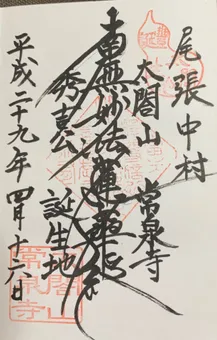 尾張中村
太閤山
常泉寺
南無妙法蓮華経
秀吉公
誕生地
平成二十九年四月十六日
太閤山
常泉寺